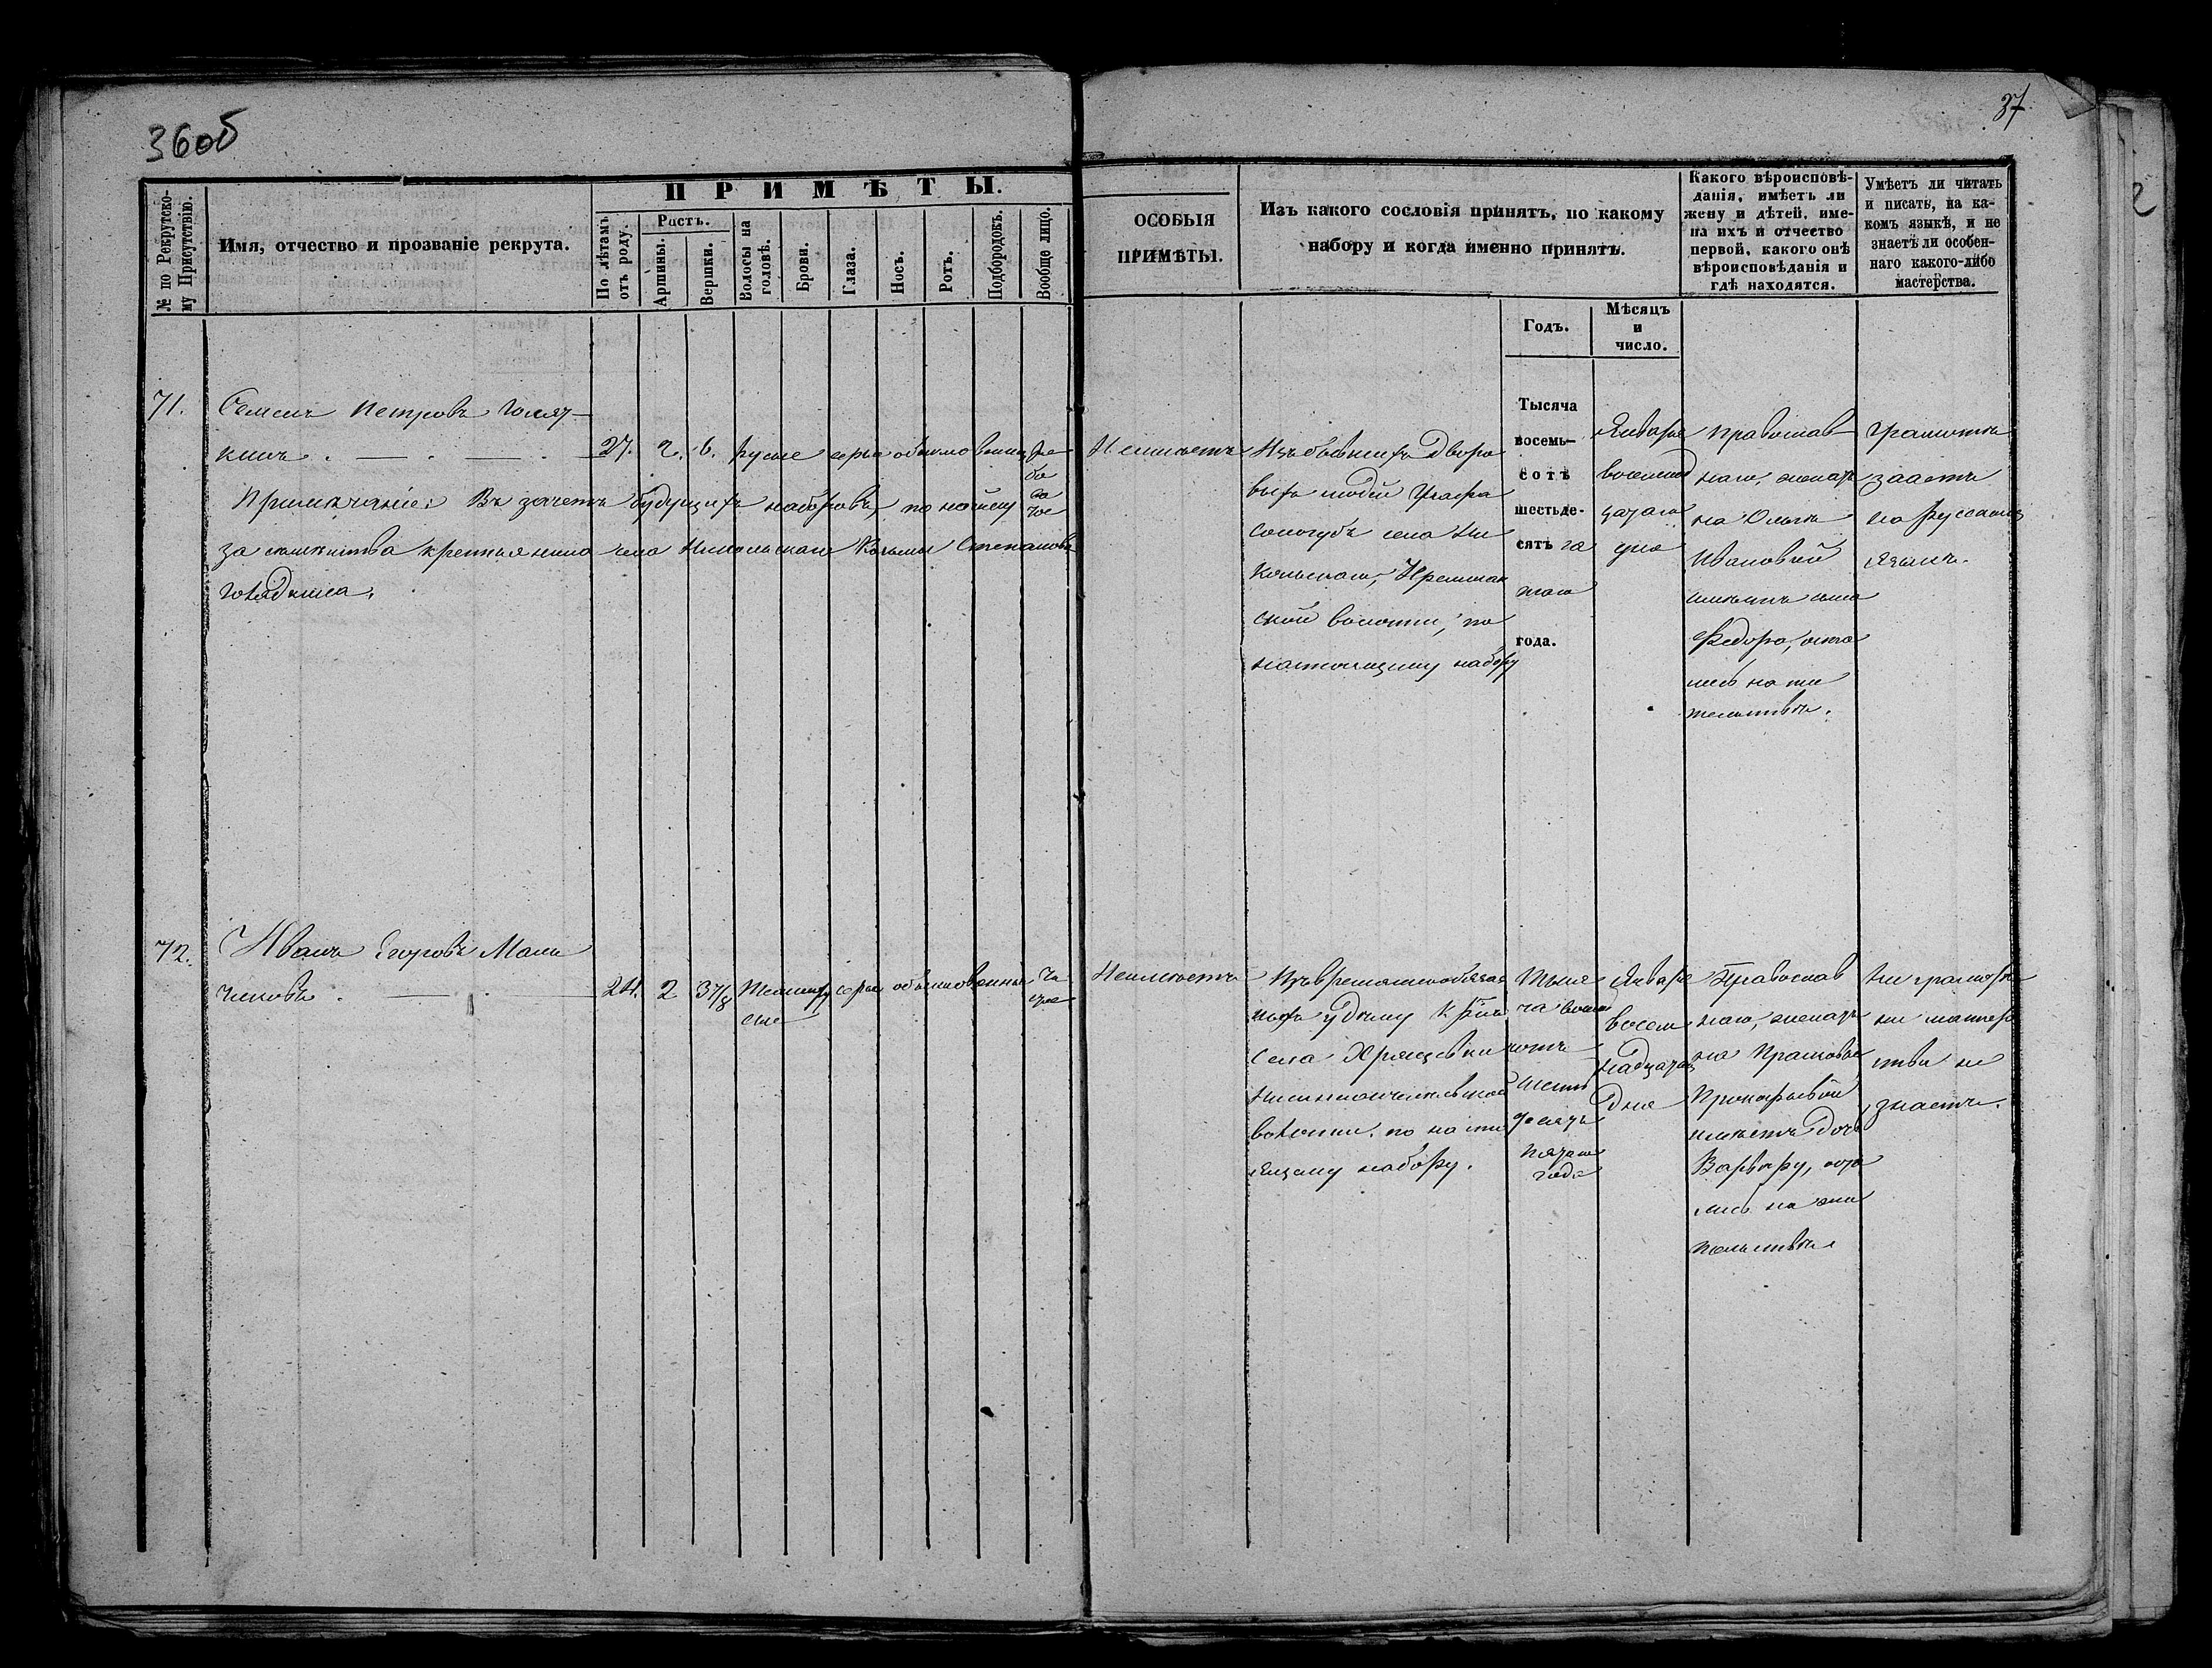 36об
37
№ по Рекрутско-
му Присутствію.
Имя, отчество и прозваніе рекрута.
ПРИМѢТЫ.
По лѣтамъ
отъ роду.
Ростъ.
Аршины.
Вершки.
Волосы на
головѣ.
Брови.
Глаза.
Носъ.
Ротъ.
Подбородокъ.
Вообще лицо.
ОСОБЫЯ
ПРИМѢТЫ.
Изъ какого сословія принятъ, по какому
набору и когда именно принятъ.
Годъ.
Мѣсяцъ
и
число.
Какого вѣроисповѣ-
данія, имѣетъ ли
жену и дѣтей, име-
на ихъ и отчество
первой, какого онѣ
вѣроисповѣданія и
гдѣ находятся.
Умѣетъ ли читать
и писать, на ка-
комъ языкѣ, и не
знаетъ ли особен-
наго какого-либо
мастерства.
71.
Семенъ Петровъ
кинъ
27. 2. 6. русые серые обыкновенны ря
бо
ва
тое
Примѣчаніе: Въ зачетъ будущихъ наборовъ,
за крестьянина села Никольскаго Козьмы Степанова
Неимѣетъ
Изъ бывшихъ дворо
выхъ людей Графа
Сологубъ села Ни
кольскаго,
ской волости, по
настоящему набору
Тысяча
восемь-
сотъ
шестьде-
сятъ
таго
года.
Января
восемнад
цатаго
дня
Православ
наго, женатъ
на
Ивановой
имѣетъ сына
Федора, оста
лись на жи
тельствѣ.
Грамоте
знаетъ
на русскомъ
языкѣ.
72.
Иванъ Егоровъ Мала
чиховъ
24. 2 3 7/8 Темнору серые обыкновенные чи
сые
стое
Неимѣетъ
Изъ временнообязан
ныхъ удѣлу Крес
села Хрящевки
волости. по насто
ящему набору.
Тыся
ча восем
сотъ
шесть
десятъ
пятаго
года
Января
восем
надцатаго
дня
Православ
наго, женатъ
на Прасковье
Прокофьевой
имѣетъ дочь
Варвару, оста
лись на жи
тельствѣ
Ни грамоты
ни мастерс
тва не
знаетъ.